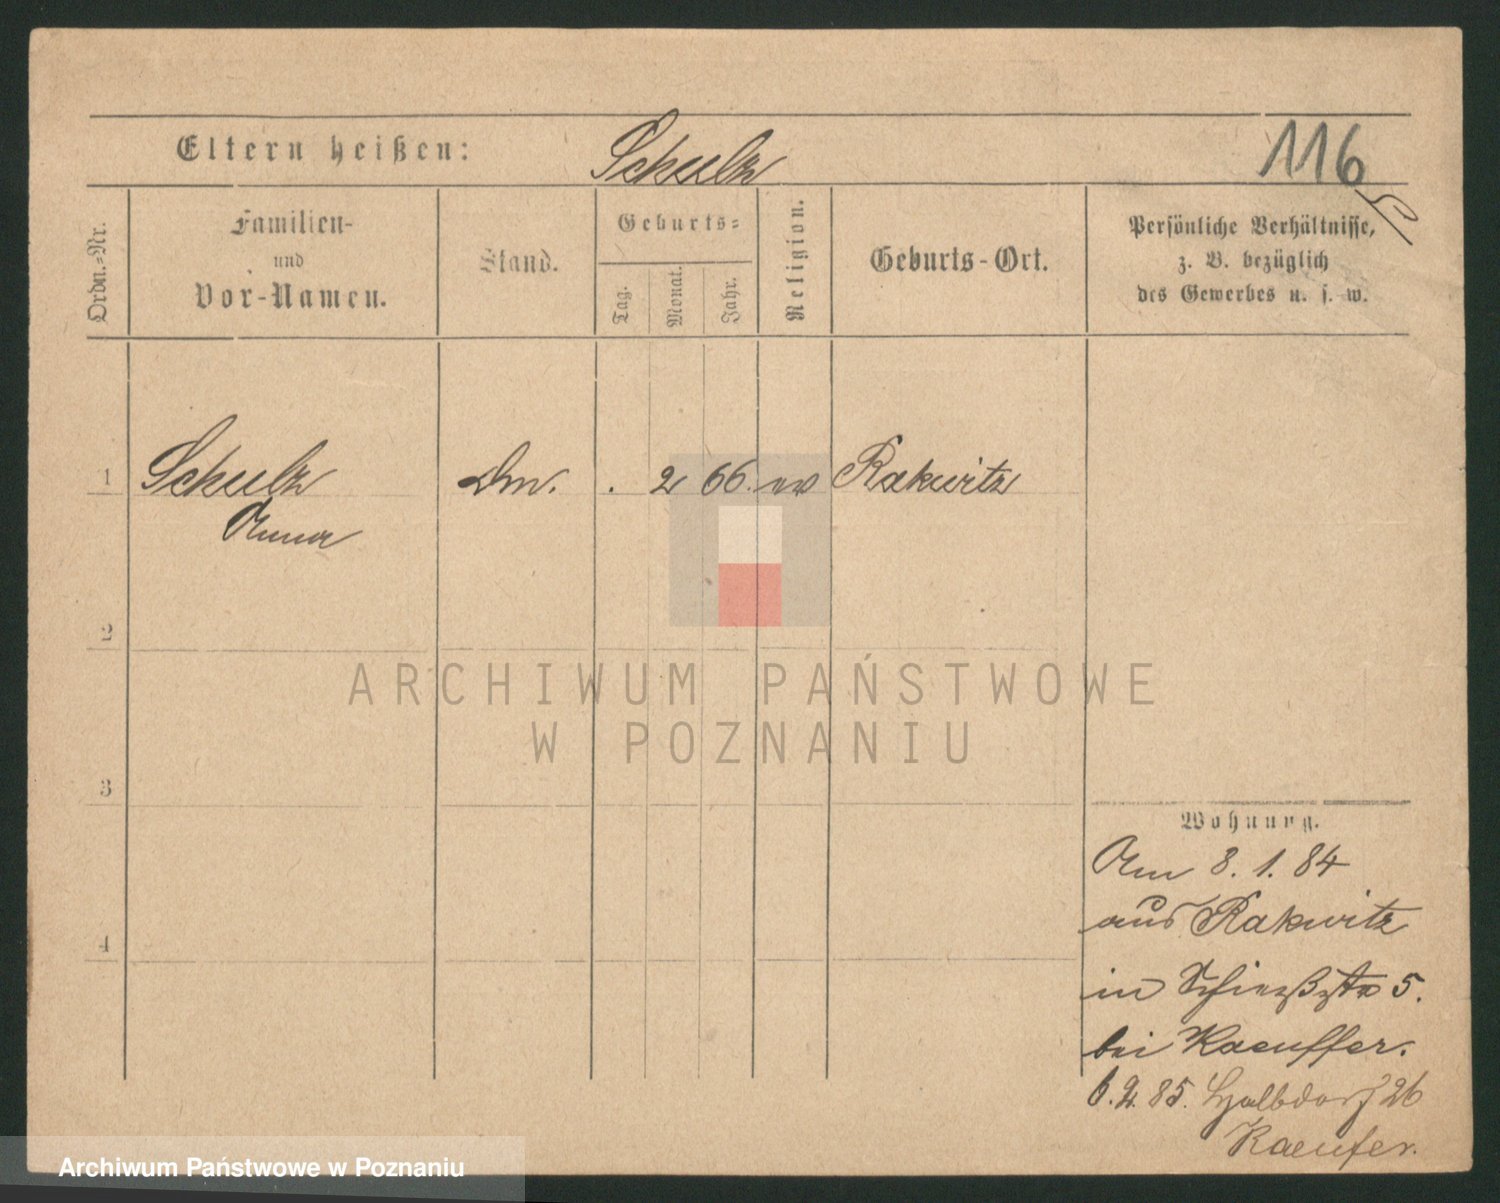 Eltern heißen: Schulz 116
Ordn.-Nr.
Familien-
und
Vor-Namen.
Stand.
Geburts=
Tag.
Monat.
Jahr.
Religion.
Geburts-Ort.
Persönliche Verhältnisse,
z. B. bezüglich
des Gewerbes u. s. w.
1 Schulz Dm. . 2 66. ev Rakwitz
Anna
2
3
4
Wohnung.
Am 8. 1. 84
aus Rakwitz
in Schießstr 5.
bei Kaeuffer.
6. 2. 85. Halbdorf 26
Kaeufer.
ARCHIWUM PAŃSTWOWE
W POZNANIU
Archiwum Państwowe w Poznaniu